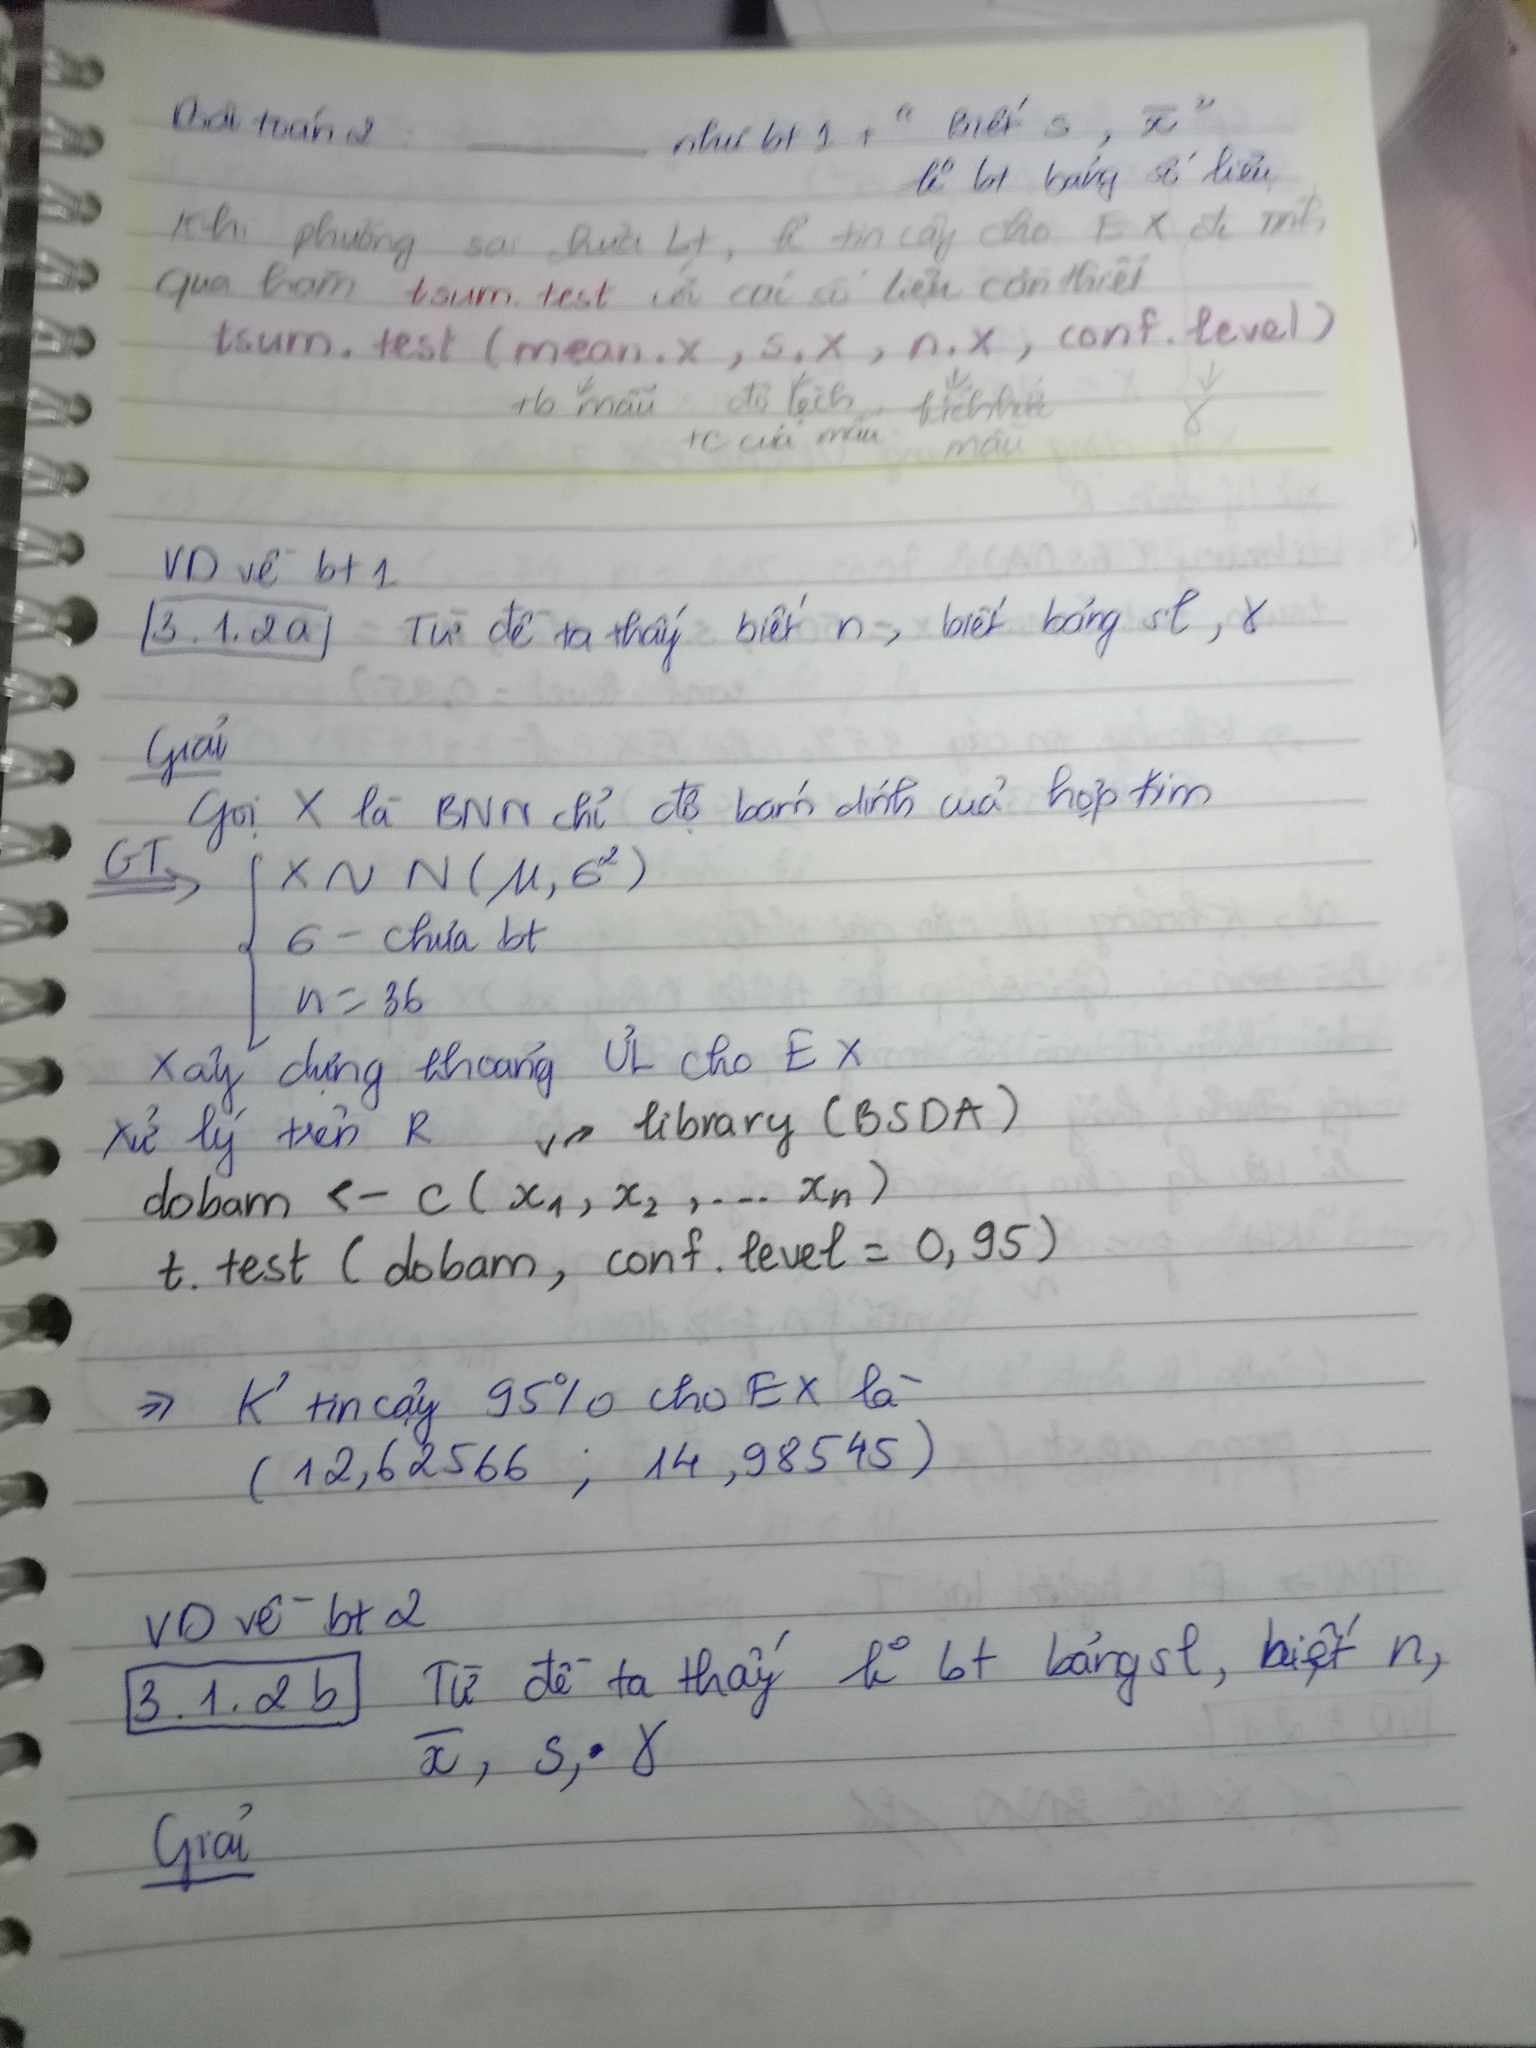 Bài toán 2: ______ như bt 1 + " Biết s, x̄ "
k° bt bảng số liệu
Khi phương sai chưa bt, k tin cậy cho EX đc tính
qua hàm tsum.test với các số liệu cần thiết
tsum.test (mean.x, s.x, n.x, conf.level)
↓ ↓ ↓ ↓
+b mẫu độ lệch kích thước γ
+c của mẫu mẫu
VD về bt 1
3.1.2a Từ đề ta thấy biết n, biết bảng sl, γ
Giải
Gọi X là BNN chỉ độ bám dính của hợp kim
GT → { X ~ N(μ, σ²)
σ - chưa bt
n = 36
Xây dựng khoảng ƯL cho EX
Xử lý trên R library (BSDA)
dobam <- c(x₁, x₂, .... xₙ)
t.test (dobam, conf.level = 0,95)
=> K' tin cậy 95% cho EX là
(12,62566 ; 14,98545)
VD về bt 2
3.1.2b Từ đề ta thấy k° bt bảng sl, biết n,
x̄, s, γ
Giải